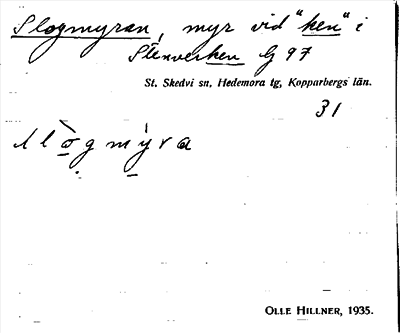 Slogmyran, myr vid "ken" i
Stenverken G 97
St. Skedvi sn, Hedemora tg, Kopparbergs län.
31
slògmýra
OLLE HILLNER, 1935.